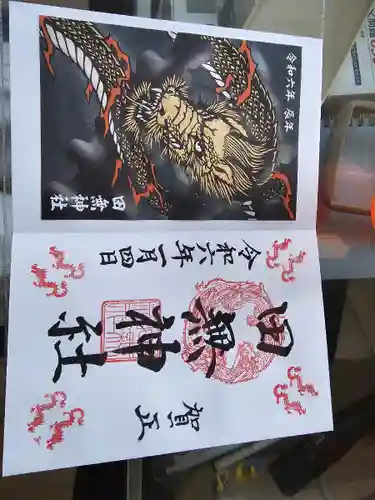 令和六年 辰年
田無神社
令和六年一月四日
田無神社
賀正